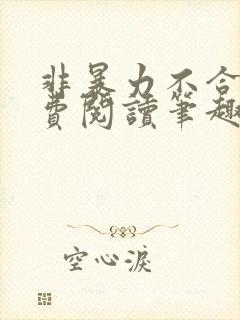 非暴力不合
費閱讀筆趣
空心淚